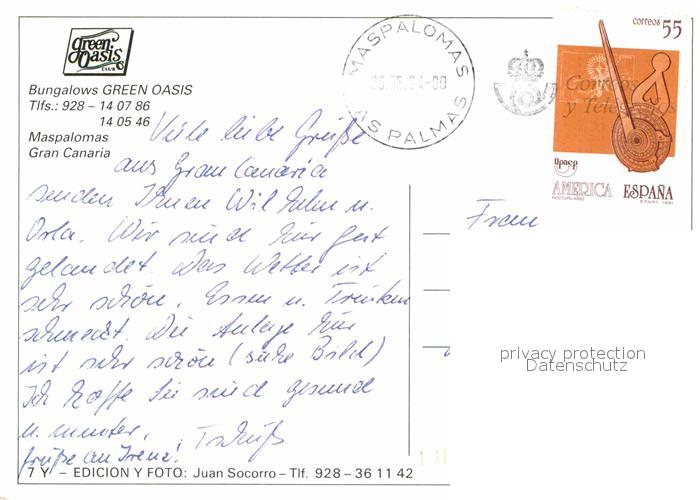 Green Oasis
CLUB
Bungalows GREEN OASIS
Tlfs.: 928 – 14 07 86
14 05 46
Maspalomas
Gran Canaria
MASPALOMAS
LAS PALMAS
correos 55
Correos
y Telégrafos
UPAEP
AMERICA ESPAÑA
NOCTURLABIO F.N.M.T. 1991
Viele liebe Grüße
aus Gran Canaria
senden Ihnen Wilhelm u.
Orla. Wir sind hier gut
gelandet. Das Wetter ist
sehr schön. Essen u. Trinken
schmeckt. Die Anlage hier
ist sehr schön (siehe Bild)
Ich hoffe Sie sind gesund
u. munter. Tschüß
Grüße an Irene!
Frau
privacy protection
Datenschutz
7 Y – EDICION Y FOTO: Juan Socorro – Tlf. 928 – 36 11 42